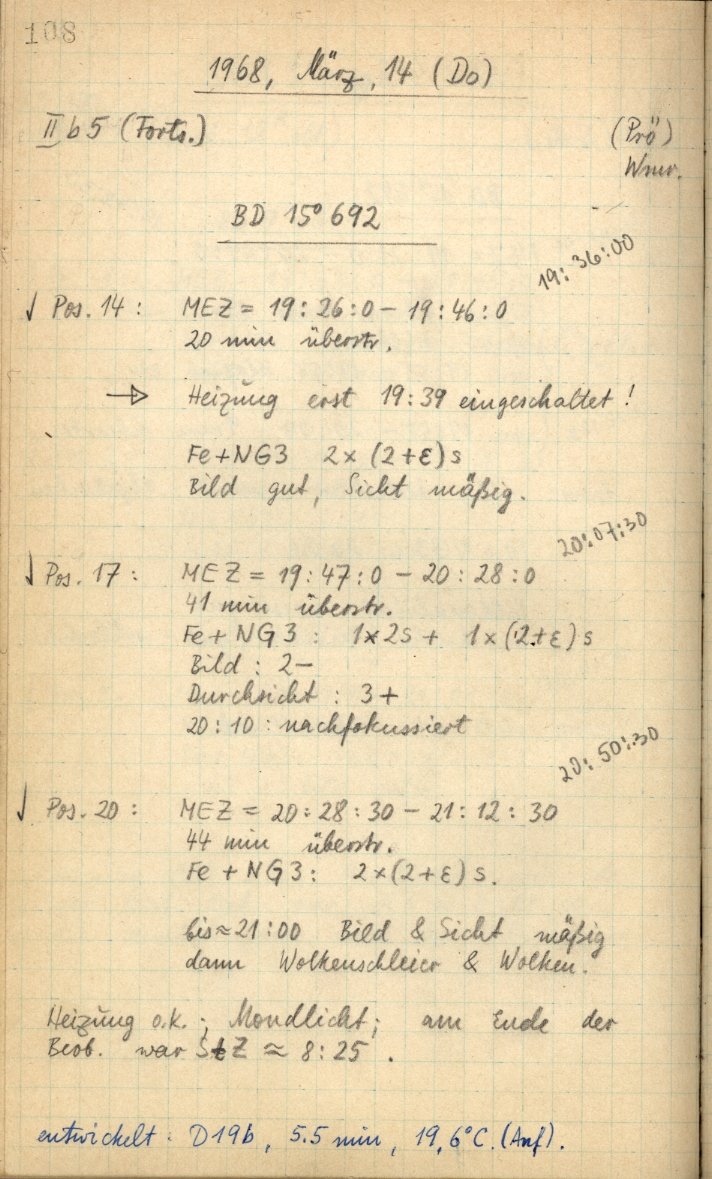 108
1968, März, 14 (Do)
II b 5 (Forts.) (Prö)
Wmr.
BD 15° 692
19:36:00
√ Pos. 14 : MEZ = 19:26:0 – 19:46:0
20 min überstr.
→ Heizung erst 19:39 eingeschaltet !
Fe+NG3 2× (2+ε) s
Bild gut, Sicht mäßig.
20:07:30
√ Pos. 17 : MEZ = 19:47:0 – 20:28:0
41 min überstr.
Fe+NG3 : 1×2s + 1×(2+ε) s
Bild : 2–
Durchsicht : 3+
20:10 : nachfokussiert
20:50:30
√ Pos. 20 : MEZ = 20:28:30 – 21:12:30
44 min überstr.
Fe + NG3 : 2×(2+ε) s.
bis ≈ 21:00 Bild & Sicht mäßig
dann Wolkenschleier & Wolken.
Heizung o.k. ; Mondlicht ; am Ende der
Beob. war StZ ≈ 8:25 .
entwickelt : D19b , 5.5 min , 19,6°C. (Anf).